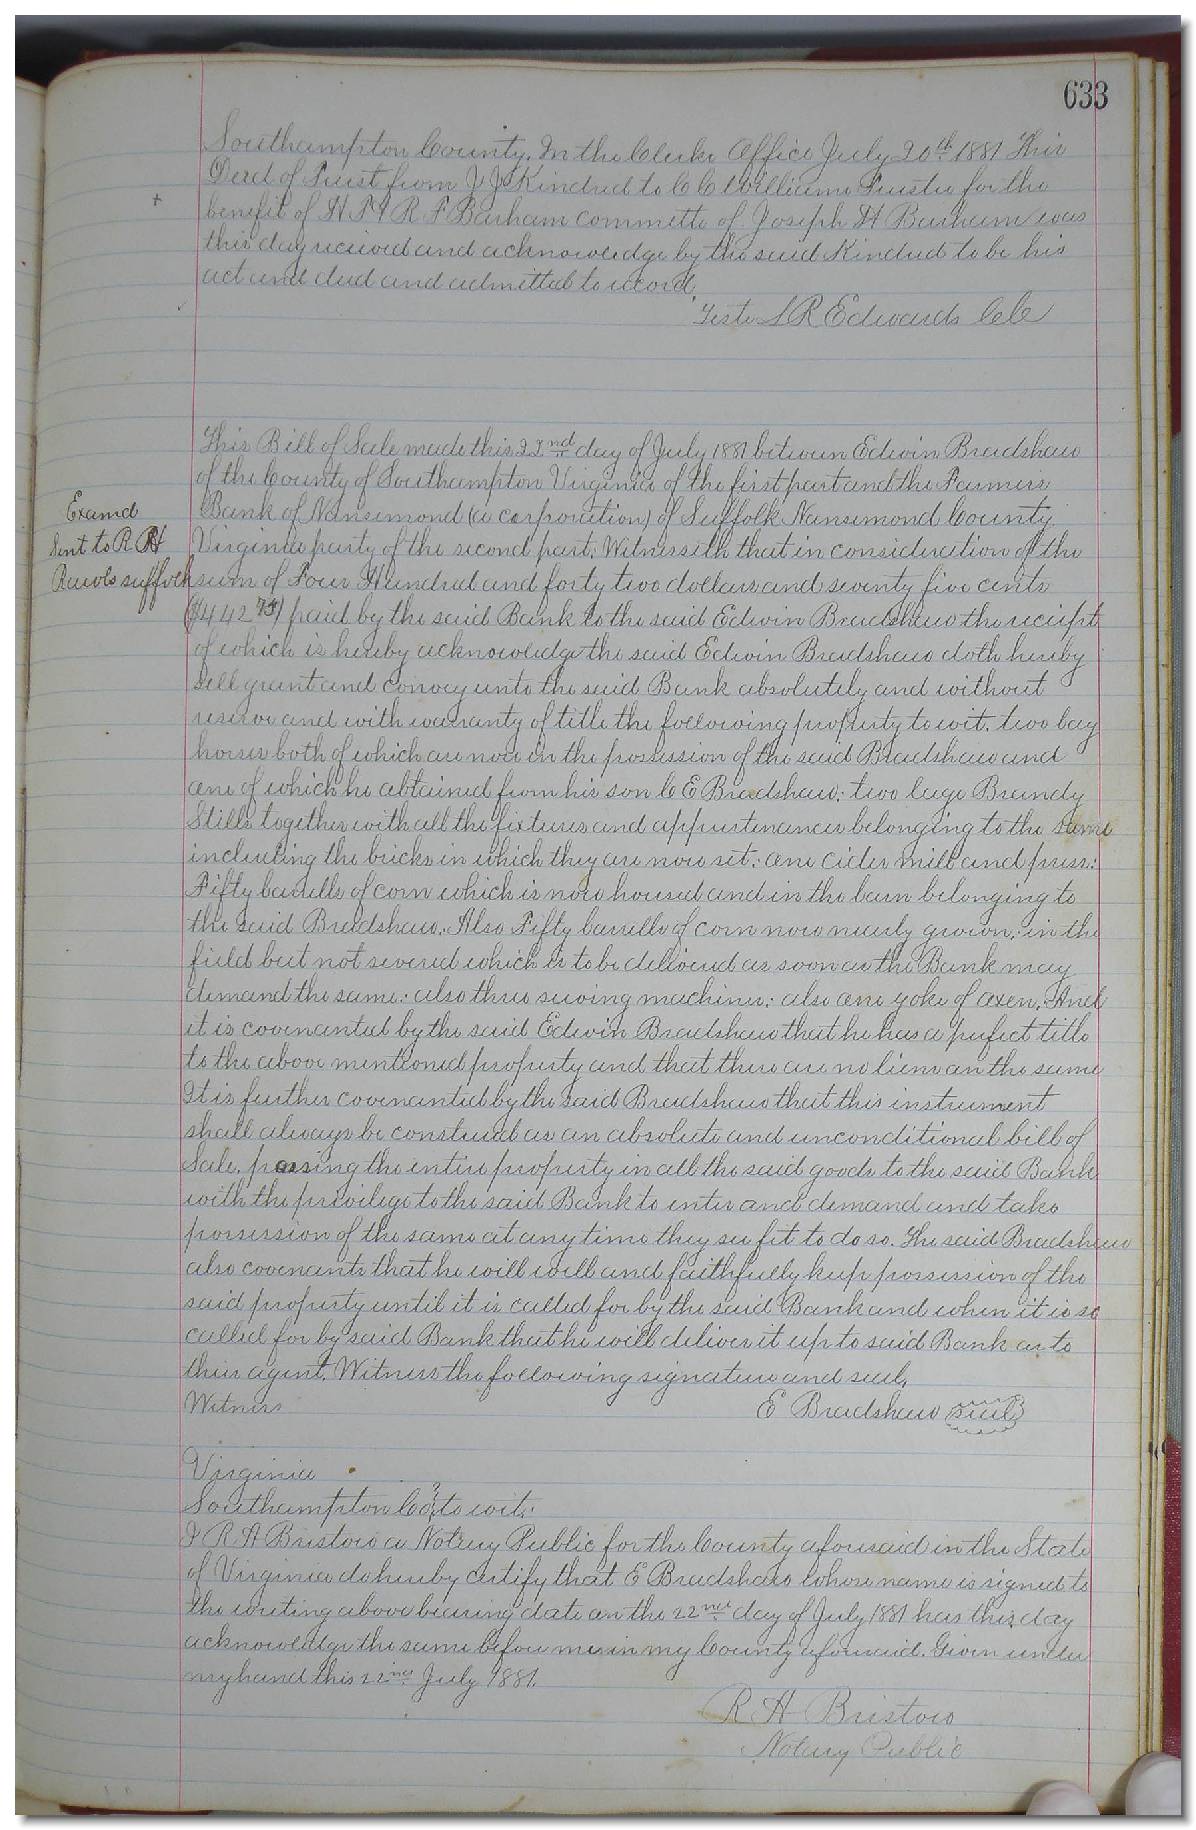 633
Southampton County. In the Clerks Office July 20th 1881 This
Deed of Trust from J J Kindred to C C Williams Trustee for the
benefit of H T & R F Barham committe of Joseph H Barham was
this day received and acknowledge by the said Kindred to be his
act and deed and admitted to record.
Teste L R Edwards Clk
This Bill of Sale made this 22nd day of July 1881 between Edwin Bradshaw
of the County of Southampton Virginia of the first part and the Farmers
Bank of Nansemond (a corporation) of Suffolk Nansemond County
Virginia party of the second part. Witnesseth that in consideration of the
sum of Four Hundred and forty two dollars and seventy five cents
($442 75) paid by the said Bank to the said Edwin Bradshaw the receipt
of which is hereby acknowledge the said Edwin Bradshaw doth hereby
sell grant and convey unto the said Bank absolutely and without
reserve and with warranty of title the following property to wit. two bay
horses both of which are now in the possession of the said Bradshaw and
one of which he obtained from his son C E Bradshaw: two large Brandy
Stills together with all the fixtures and appurtenances belonging to the same
including the bricks in which they are now set: one cider mill and press:
Fifty barrells of corn which is now housed and in the barn belonging to
the said Bradshaw. Also Fifty barrells of corn now nearly grown: in the
field but not severed which is to be delivered as soon as the Bank may
demand the same: also three sewing machines: also one yoke of oxen. And
it is covenanted by the said Edwin Bradshaw that he has a perfect title
to the above mentioned property and that there are no liens on the same
It is further covenanted by the said Bradshaw that this instrument
shall always be construed as an absolute and unconditional bill of
Sale, passing the entire property in all the said goods to the said Bank
with the privilege to the said Bank to enter and demand and take
possession of the same at any time they see fit to do so. The said Bradshaw
also covenants that he will well and faithfully keep possession of the
said property until it is called for by the said Bank and when it is so
called for by said Bank that he will deliver it up to said Bank or to
their agent. Witness the following signature and seal.
Witness E Bradshaw seal
Examd
Sent to R R
Rawls suffolk
Virginia
Southampton Co, to wit:
I R A Bristow a Notary Public for the County aforesaid in the State
of Virginia do hereby certify that E Bradshaw whose name is signed to
the writing above bearing date on the 22nd day of July 1881 has this day
acknowledge the same before me in my County aforesaid. Given under
my hand this 22nd July 1881.
R A Bristow
Notary Public